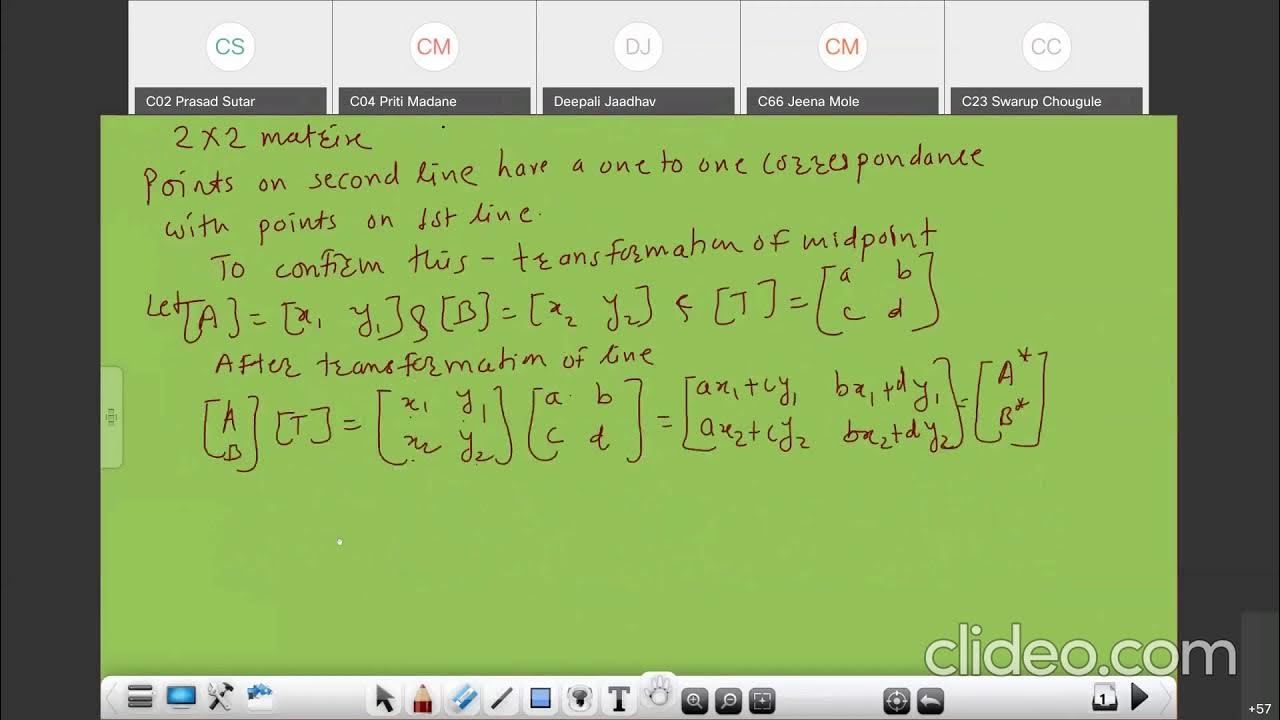 CS CM DJ CM CC
C02 Prasad Sutar C04 Priti Madane Deepali Jaadhav C66 Jeena Mole C23 Swarup Chougule
2 X 2 matrix
Points on second line have a one to one correspondance
with points on 1st line.
To confirm this - transformation of midpoint
Let [A] = [x₁ y₁] & [B] = [x₂ y₂] & [T] = [a b
c d]
After transformation of line
[A
B] [T] = [x₁ y₁
x₂ y₂] [a b
c d] = [ax₁+cy₁ bx₁+dy₁
ax₂+cy₂ bx₂+dy₂] = [A*
B*]
clideo.com
T 1
+57